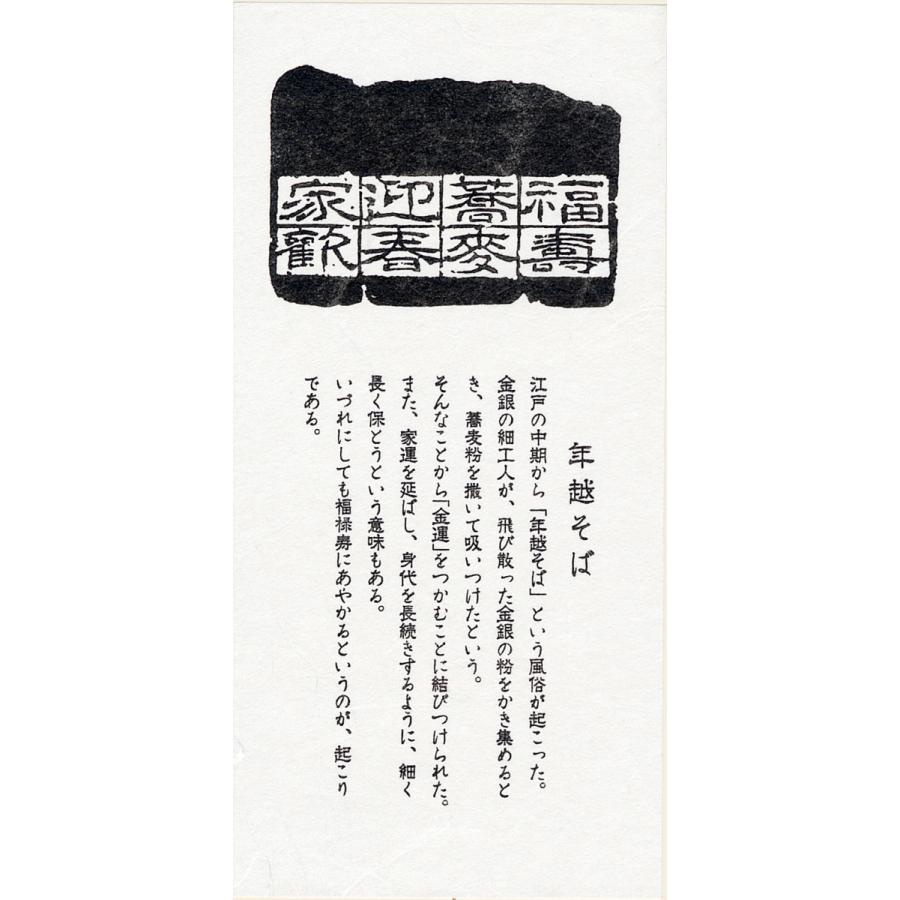 福壽
蕎麥
迎春
家歡
年越そば
江戸の中期から「年越そば」という風俗が起こった。
金銀の細工人が、飛び散った金銀の粉をかき集めると
き、蕎麦粉を撒いて吸いつけたという。
そんなことから「金運」をつかむことに結びつけられた。
また、家運を延ばし、身代を長続きするように、細く
長く保とうという意味もある。
いづれにしても福禄寿にあやかるというのが、起こり
である。